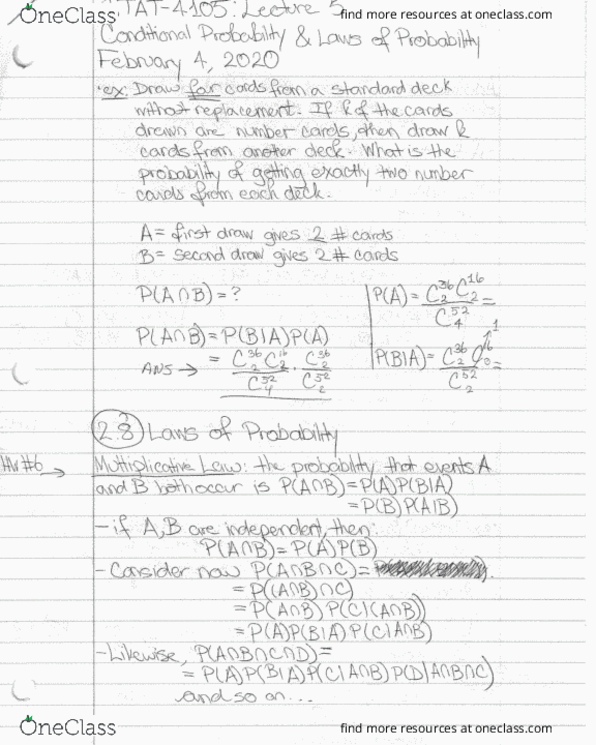 OneClass
find more resources at oneclass.com
STAT-4105: Lecture 5
Conditional Probability & Laws of Probability
February 4, 2020
·ex: Draw for cards from a standard deck
without replacement. If k of the cards
drawn are number cards, then draw k
cards from another deck. What is the
probability of getting exactly two number
cards from each deck.
A = first draw gives 2 # cards
B = second draw gives 2 # cards
P(A∩B) = ?
P(A) = C^36_2 C^16_2 / C^52_4 =
P(A∩B) = P(B|A)P(A)
ANS → = C^36_2 C^16_2 / C^52_4 · C^36_2 / C^52_2
P(B|A) = C^36_2 C^16_0 / C^52_2 =
1
2.8 Laws of Probability
HW#6 → Multiplicative Law: the probability that events A
and B both occur is P(A∩B) = P(A)P(B|A)
= P(B)P(A|B)
- if A,B are independent, then:
P(A∩B) = P(A)P(B)
- Consider now P(A∩B∩C) =
= P((A∩B)∩C)
= P(A∩B) P(C|(A∩B))
= P(A)P(B|A) P(C|A∩B)
- Likewise, P(A∩B∩C∩D) =
= P(A)P(B|A)P(C|A∩B)P(D|A∩B∩C)
and so on...
OneClass
find more resources at oneclass.com